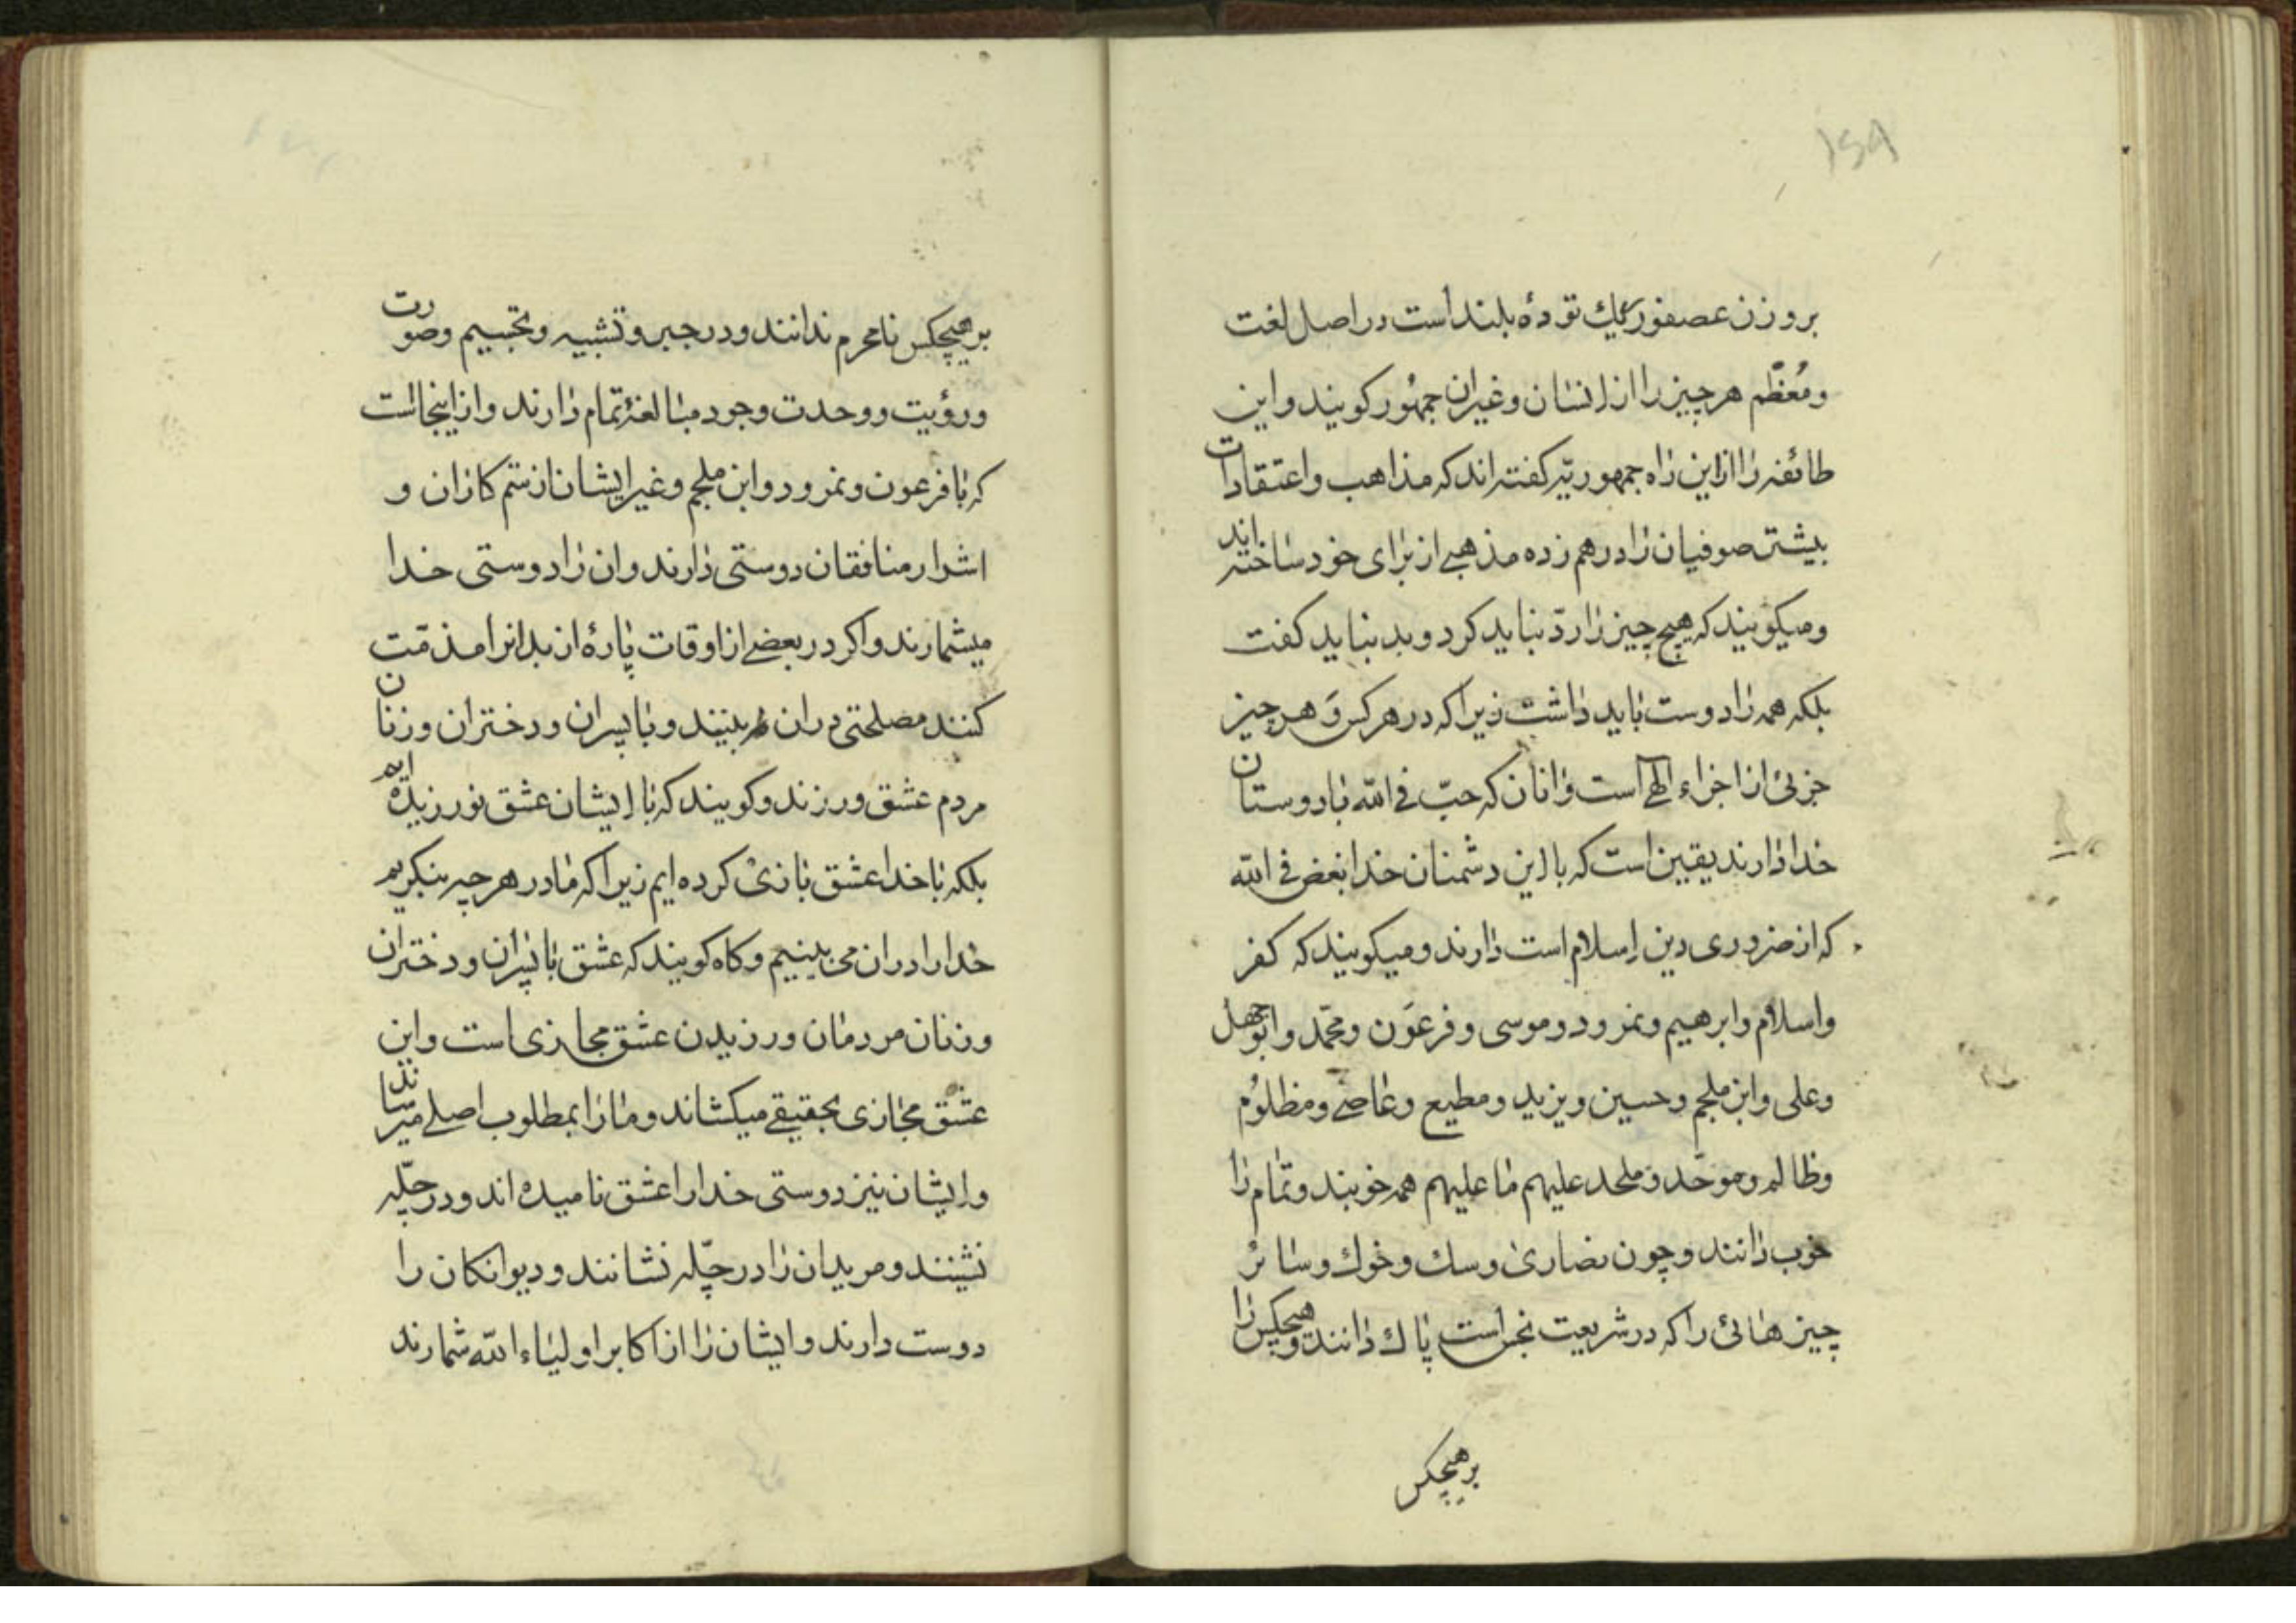 ۱۵۹
بروزن عصفور ریك توده بلند است در اصل لغت
ومُعظّم هر چیز را از انسان وغیران جمهُور کویند واین
طائفه را از این راه جمهوریّه کفته اند که مذاهب واعتقادات
بیشتر صوفیان را درهم زده مذهبی از برای خود ساخته اند
ومیکویند که هیچ چیز را ردّ نباید کرد وبد نباید کفت
بلکه همه را دوست باید داشت زیرا که در هر کس وَ هر چیز
جزئی از اجزاء الهی است وانان که حبّ فی الله با دوستان
خدا دارند یقین است که با این دشمنان خدا بغض فی الله
که از ضروری دین اسلام است دارند ومیکویند که کفر
واسلام وابرهیم ونمرود وموسی وفرعَون ومحمّد وابوجهل
وعلی وابن ملجم وحسین ویزید ومطیع وعاصی ومظلوُم
وظالم وموحّد وملحد علیهم ما علیهم همه خوبند وتمام را
خوب دانند وچون نصاریٰ وسك وخوك وسائر
چیزهائی را که در شریعت نجس است پاك دانند وهیچکس را
بر هیچکس
بر هیچکس نامحرم ندانند ودر جبر وتشبیه وتجسیم وصورت
ورؤیت ووحدت وجود مبالغهٔ تمام دارند واز اینجا است
که با فرعون ونمرود وابن ملجم وغیر ایشان از ستم کاران و
اشرار منافقان دوستی دارند وان را دوستی خدا
میشمارند واکر در بعضی از اوقات پارهٔ از بدانرا مذمّت
کنند مصلحتی دران بینند وبا پسران ودختران وزنان
مردم عشق ورزند وکویند که با ایشان عشق نورزیده ایم
بلکه با خدا عشق بازیْ کرده ایم زیرا که ما در هر چه بنکریم
خدا را دران می بینیم وکاه کویند که عشق با پسران ودختران
وزنان مردمان ورزیدن عشق مجازی است واین
عشق مجازی بحقیقی میکشاند وما را بمطلوب اصلی میرساند
وایشان نیز دوستی خدا را عشق نامیده اند ودر چلّه
نشینند ومریدان را در چلّه نشانند ودیوانکان را
دوست دارند وایشان را از اکابر اولیاء الله شمارند